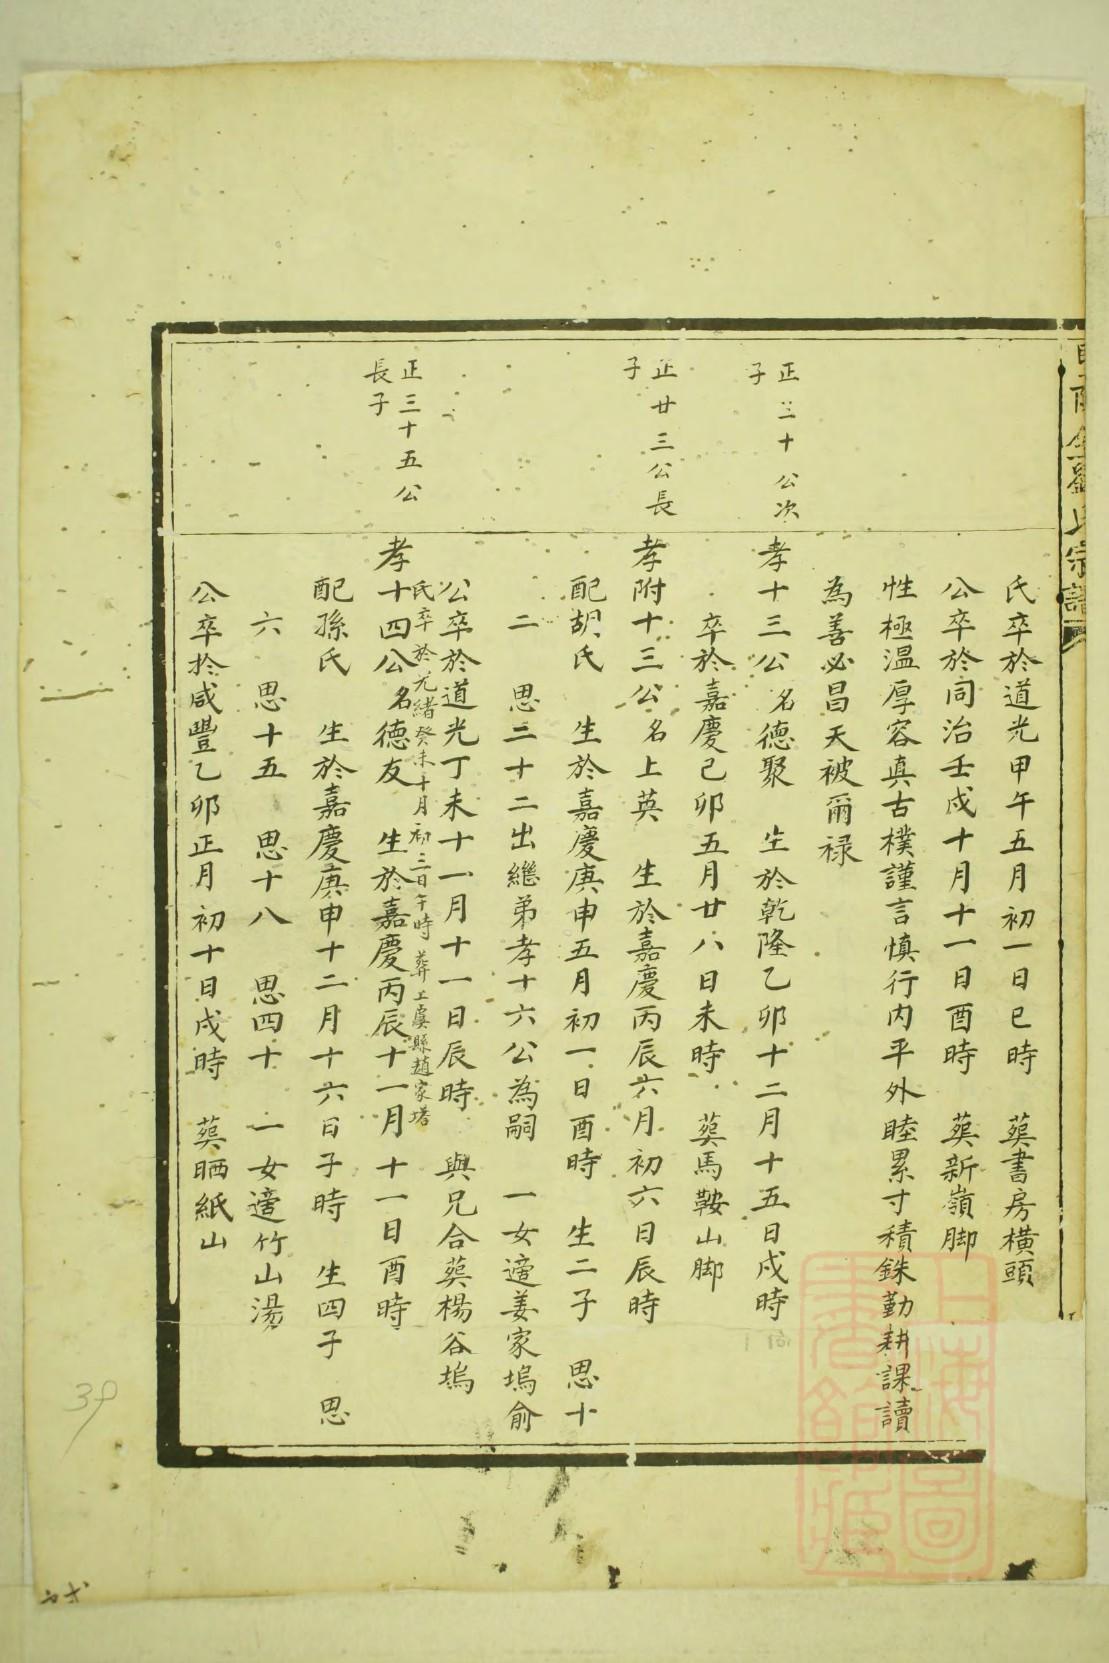 劉氏宗譜
氏卒於道光甲午五月初一日巳時　葬書房橫頭
公卒於同治壬戌十月十一日酉時　葬新嶺脚
性極温厚容真古樸謹言慎行内平外睦累寸積銖勤耕課讀
為善必昌天被爾禄
正二十公次
子
孝十三公名德聚　生於乾隆乙卯十二月十五日戌時
卒於嘉慶己卯五月廿八日未時　葬馬鞍山脚
正廿三公長
子
孝附十三公名上英　生於嘉慶丙辰六月初六日辰時
配胡氏　生於嘉慶庚申五月初一日酉時　生二子　思十
二　思三十二出繼弟孝十六公為嗣　一女適姜家塢俞
公卒於道光丁未十一月十一日辰時　與兄合葬楊谷塢
氏卒於光緒癸未十月初三日午時　葬上虞縣趙家塔
正三十五公
長子
孝十四公名德友　生於嘉慶丙辰十一月十一日酉時
配孫氏　生於嘉慶庚申十二月十六日子時　生四子　思
六　思十五　思十八　思四十　一女適竹山湯
公卒於咸豐乙卯正月初十日戌時　葬晒紙山
39
上海圖書館藏